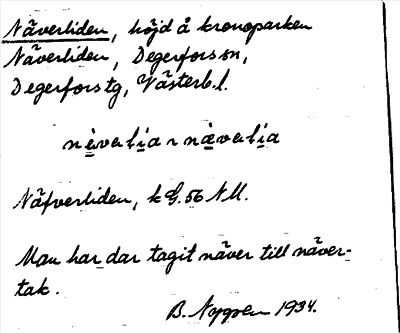 Näverliden, höjd å kronoparken
Näverliden, Degerfors sn,
Degerfors tg, Västerb. l.
nàvalìa ~ nævalìa
Näfverliden, k G. 56 NM.
Man har dar tagit näver till näver-
tak.
B. Nygren 1934.